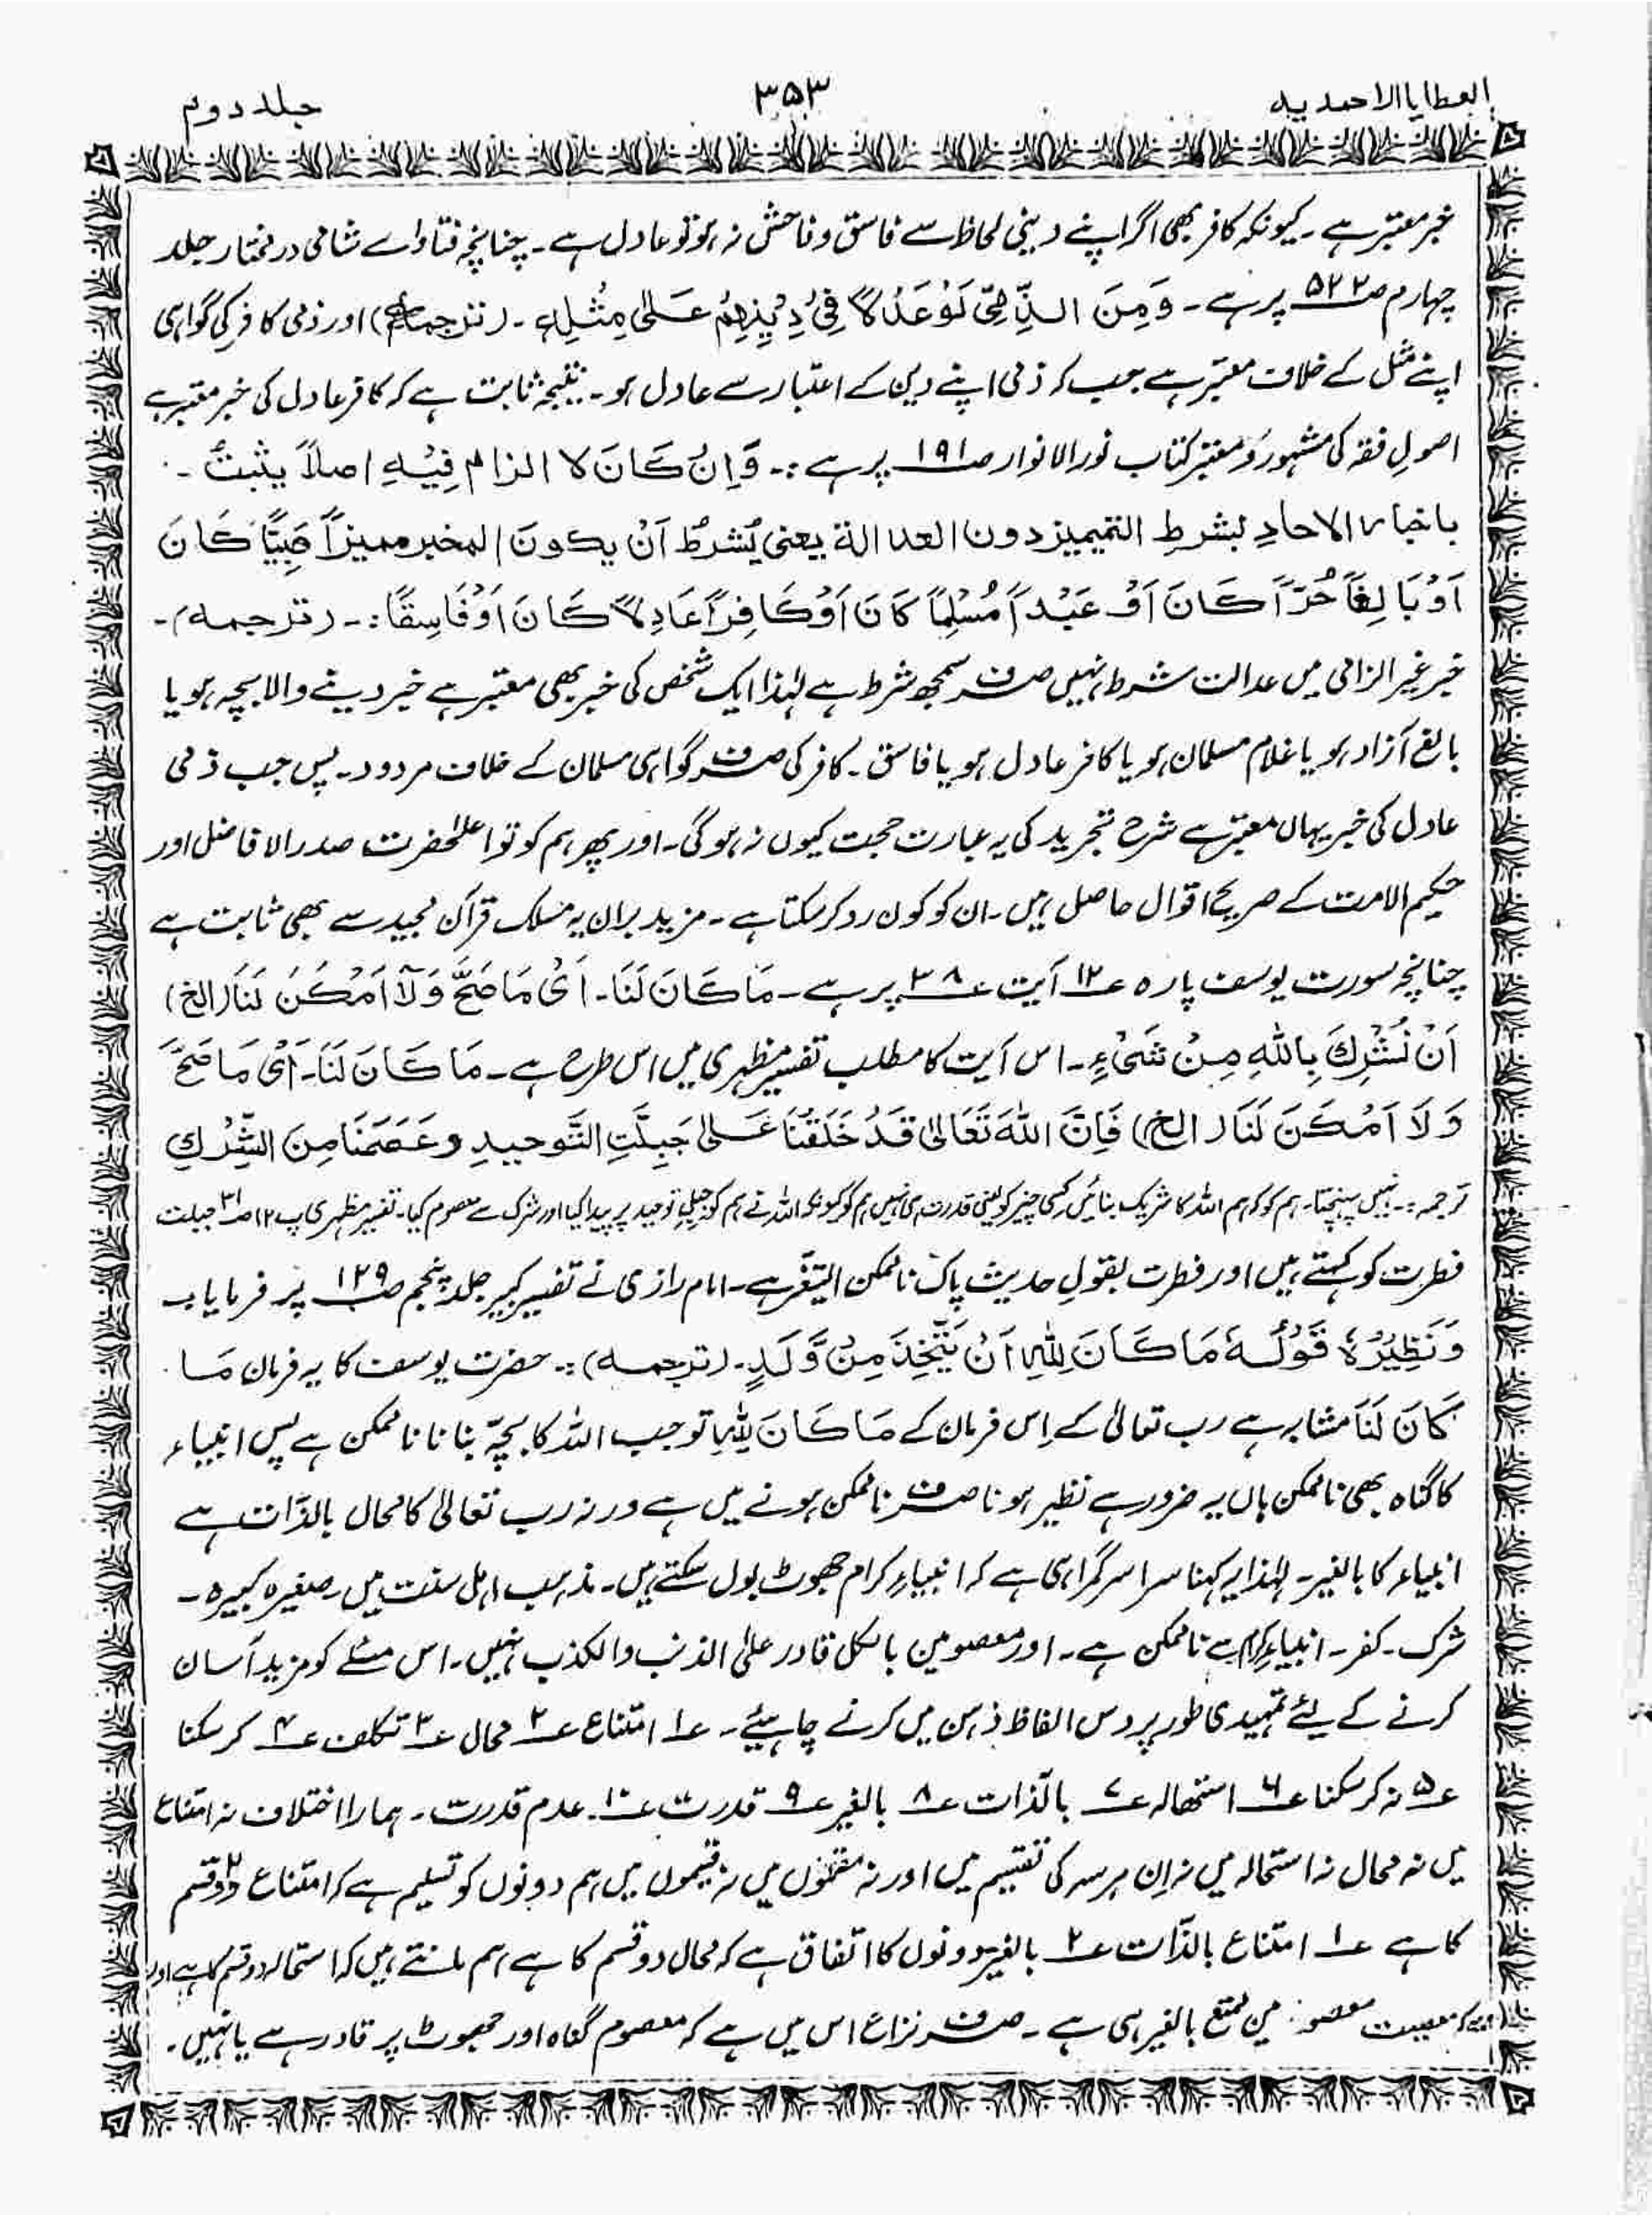 العطایا الاحمدیہ
۳۵۳
جلد دوم
خبر معتبر ہے۔ کیونکہ کافر بھی اگر اپنے دینی لحاظ سے فاسق و فاحش نہ ہو تو عادل ہے۔ چنانچہ فتاواے شامی در مختار جلد
چہارم صـ۵۲۲ پر ہے۔ وَمِنَ الذِّمِّیِّ لَوْ عَدْلًا فِیْ دِیْنِهِمْ عَلٰی مِثْلِهٖ۔ (ترجمہ) اور ذمی کافر کی گواہی
اپنے مثل کے خلاف معتبر ہے جب کہ ذمی اپنے دین کے اعتبار سے عادل ہو۔ نتیجہ ثابت ہے کہ کافر عادل کی خبر معتبر ہے
اصولِ فقہ کی مشہور و معتبر کتاب نور الانوار صـ۱۹۱ پر ہے :۔ وَاِنْ کَانَ لا الزام فِیْهِ اصلاً یثبتُ۔
باخبار الاحادِ بشرطِ التمییز دون العدالة یعنی یُشْرطُ اَنْ یکونَ المخبر ممیزاً صَبِیًّا کَانَ
اَوْ بَالِغًا حُرًّا کَانَ اَوْ عَبْداً مُسْلِمًا کَانَ اَوْ کَافِراً عَادِلًا کَانَ اَوْ فَاسِقًا :۔ (ترجمہ)۔
خبر غیر الزامی میں عدالت شرط نہیں صرف سمجھ شرط ہے لہٰذا ایک شخص کی خبر بھی معتبر ہے خبر دینے والا بچہ ہو یا
بالغ آزاد ہو یا غلام مسلمان ہو یا کافر عادل ہو یا فاسق۔ کافر کی صرف گواہی مسلمان کے خلاف مردود۔ پس جب ذمی
عادل کی خبر یہاں معتبر ہے شرح تجرید کی یہ عبارت حجت کیوں نہ ہوگی۔ اور پھر ہم کو تو اعلیٰحضرت صدر الافاضل اور
حکیم الامت کے صریح اقوال حاصل ہیں۔ ان کو کون رد کر سکتا ہے۔ مزید براں یہ مسلک قرآن مجید سے بھی ثابت ہے
چنانچہ سورت یوسف پارہ ؏۱۲ آیت ؏۳۸ پر ہے۔ مَا کَانَ لَنَا۔ اَیْ مَا صَحَّ وَلَآ اَمْکَنَ لَنَا (الخ)
اَنْ نُشْرِكَ بِاللهِ مِنْ شَیْءٍ۔ اس آیت کا مطلب تفسیر مظہری میں اس طرح ہے۔ مَا کَانَ لَنَا۔ اَیْ مَا صَحَّ
وَلَا اَمْکَنَ لَنَا (الخ) فَاِنَّ اللهَ تَعَالیٰ قَدْ خَلَقْنَا عَلیٰ جَبِلَّتِ التَّوحیدِ وعَصَمَنَا مِنَ الشِّرْكِ
ترجمہ :۔ نہیں پہنچتا۔ ہم کو کہ ہم اللہ کا شریک بنائیں کسی چیز کو یعنی قدرت ہی نہیں ہم کو کیونکہ اللہ نے ہم کو جبلِّ توحید پر پیدا کیا اور شرک سے معصوم کیا۔ تفسیر مظہری پ ۱۲ صـ۳۱ جبلت
فطرت کو کہتے ہیں اور فطرت بقولِ حدیث پاک ناممکن التغیّر ہے۔ امام رازی نے تفسیر کبیر جلد پنجم صـ۱۲۹ پر فرمایا۔
وَنَظِیْرُہٗ قَوْلُهٗ مَا کَانَ لِلّٰہِ اَنْ یَتَّخِذَ مِنْ وَّلَدٍ۔ (ترجمہ) :۔ حضرت یوسف کا یہ فرمان مَا
کَانَ لَنَا مشابہ ہے رب تعالیٰ کے اِس فرمان کے مَا کَانَ لِلّٰہِ تو جب اللہ کا بچّہ بنانا ناممکن ہے پس انبیاء
کا گناہ بھی ناممکن ہاں یہ ضرور ہے نظیر ہونا صرف ناممکن ہونے میں ہے ورنہ رب تعالیٰ کا محال بالذّات ہے
انبیاء کا بالغیر۔ لہٰذا یہ کہنا سراسر گمراہی ہے کہ انبیاءِ کرام جھوٹ بول سکتے ہیں۔ مذہب اہل سنت میں صغیرہ کبیرہ۔
شرک۔ کفر۔ انبیاءِ کرام سے ناممکن ہے۔ اور معصومین بالکل قادر علیٰ الذنب والکذب نہیں۔ اس مسئلے کو مزید آسان
کرنے کے لئے تمہیدی طور پر دس الفاظ ذہن میں کرنے چاہیئے۔ ؏۱ امتناع ؏۲ محال ؏۳ تکلف ؏۴ کر سکنا
؏۵ نہ کر سکنا ؏۶ استحالہ ؏۷ بالّذات ؏۸ بالغیر ؏۹ قدرت ؏۱۰ عدم قدرت۔ ہمارا اختلاف نہ امتناع
میں نہ محال نہ استحالہ میں نہ اِن ہر سہ کی تقسیم میں اور نہ مقسموں میں نہ قسیموں میں ہم دونوں کو تسلیم ہے کہ امتناع دو قسم
کا ہے ؏۱ امتناع بالذّات ؏۲ بالغیر دونوں کا اتفاق ہے کہ محال دو قسم کا ہے ہم مانتے ہیں کہ استحالہ دو قسم کا ہے اور
کہ معصیت میں ممتنع بالغیر ہی ہے۔ صرف نزاع اس میں ہے کہ معصوم گناہ اور جھوٹ پر قادر ہے یا نہیں۔